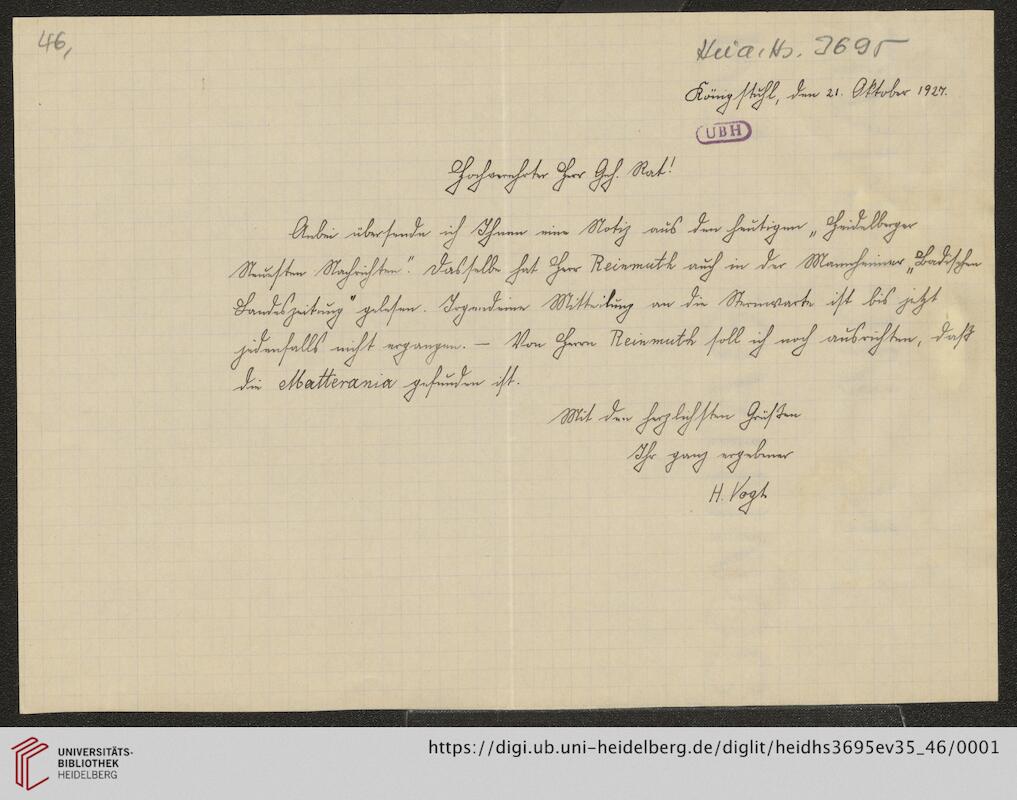 46,
Heid. Hs. 3695
Königstuhl, den 21. Oktober 1927.
UBH
Hochverehrter Herr Geh. Rat!
Anbei übersende ich Ihnen eine Notiz aus den heutigen „Heidelberger
Neuesten Nachrichten“. Dasselbe hat Herr Reinmuth auch in der Mannheimer „Badischen
Landeszeitung“ gelesen. Irgendeine Mitteilung an die Sternwarte ist bis jetzt
jedenfalls nicht ergangen. — Von Herrn Reinmuth soll ich noch ausrichten, daß
die Matterania gefunden ist.
Mit den herzlichsten Grüßen
Ihr ganz ergebener
H. Vogt
UNIVERSITÄTS-
BIBLIOTHEK
HEIDELBERG
https://digi.ub.uni-heidelberg.de/diglit/heidhs3695ev35_46/0001